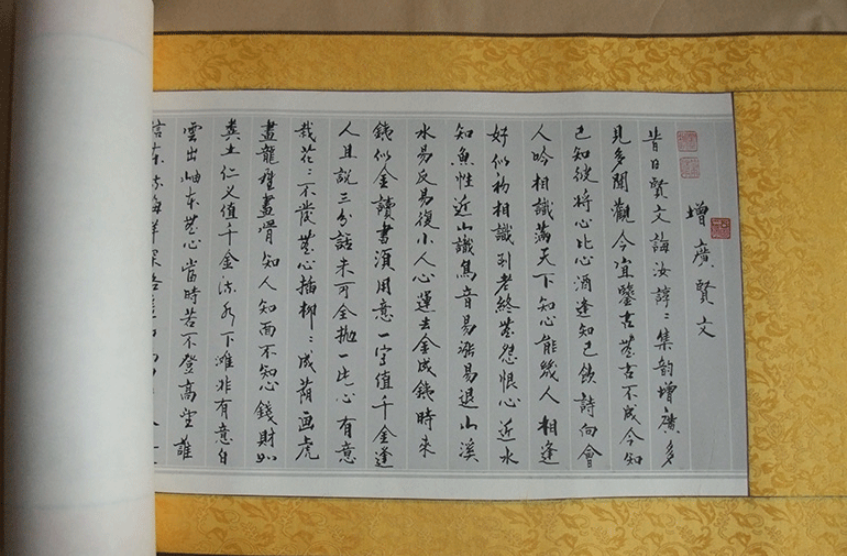 增廣賢文
昔日賢文誨汝諄〻集韵增廣多
見多聞觀今宜鑒古無古不成今知
己知彼將心比心酒逢知己飲詩向會
人吟相識滿天下知心能幾人相逢
好似初相識到老終無怨恨心近水
知魚性近山識鳥音易漲易退山溪
水易反易復小人心運去金成鐵時來
鐵似金讀書須用意一字值千金逢
人且說三分話未可全拋一片心有意
栽花〻不發無心插柳〻成蔭画虎
畫龍難畫骨知人知面不知心錢財如
糞土仁义值千金流水下灘非有意白
雲出岫本無心當時若不登高望誰
信東流海洋深路